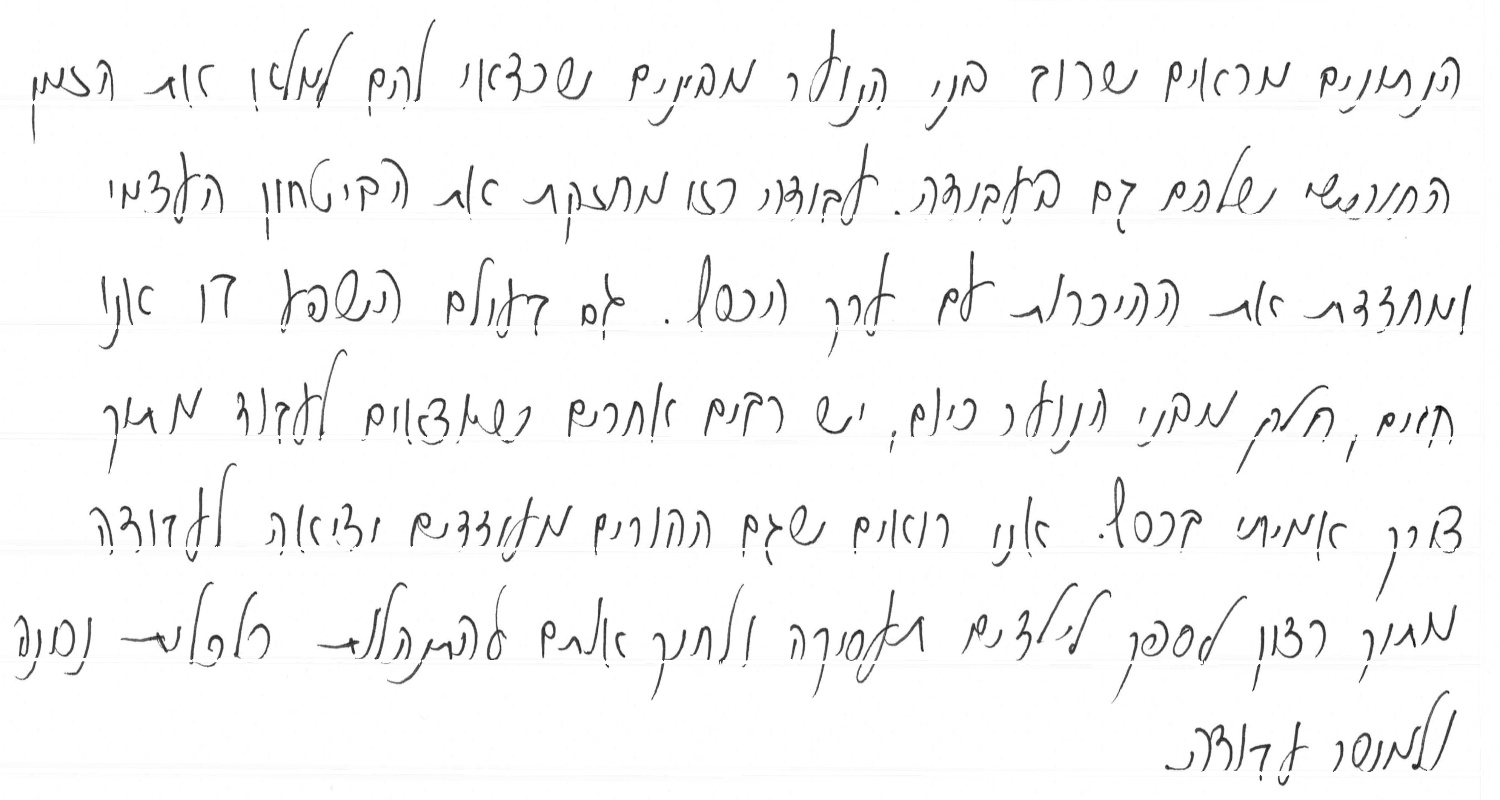 הנתונים מראים שרוב בני הנוער מבינים שכדאי להם למלא את הזמן
החופשי שלהם גם בעבודה. עבודה כזו מחזקת את הביטחון העצמי
ומחדדת את ההיכרות עם ערך הכסף. גם בעולם השפע בו אנו
חיים, חלק מבני הנוער כיום, יש רבים אחרים שיוצאים לעבוד מתוך
צורך אמיתי בכסף. אנו רואים שגם ההורים מעודדים יציאה לעבודה
מתוך רצון לספק לילדים תעסוקה ולחנך אותם להתנהלות כלכלית נכונה
ולמוסר עבודה.